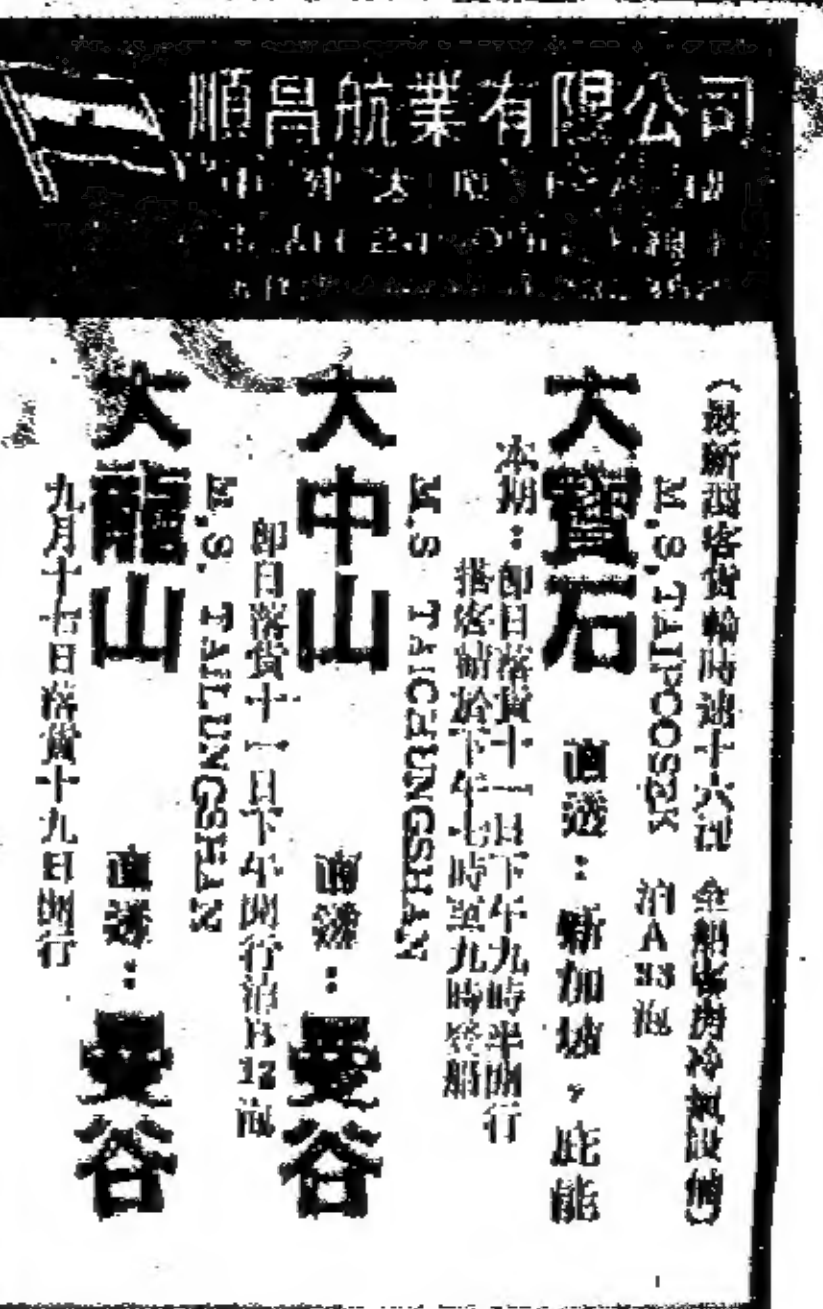 順昌航業有限公司
(最新型客貨輪時速十六浬 全船客房冷氣設備)
M.S. TAIPOOSEK 泊A33泡
大寶石 直透：新加坡，庇能
本期：即日落貨十一日下午九時半開行
搭客請於下午七時至九時登船
M.S TAICHUNGSHAN
大中山 直透：曼谷
即日落貨十一日下午開行泊B12泡
M.S. TAILUNGSHAN
大龍山 直透：曼谷
九月十七日落貨十九日開行